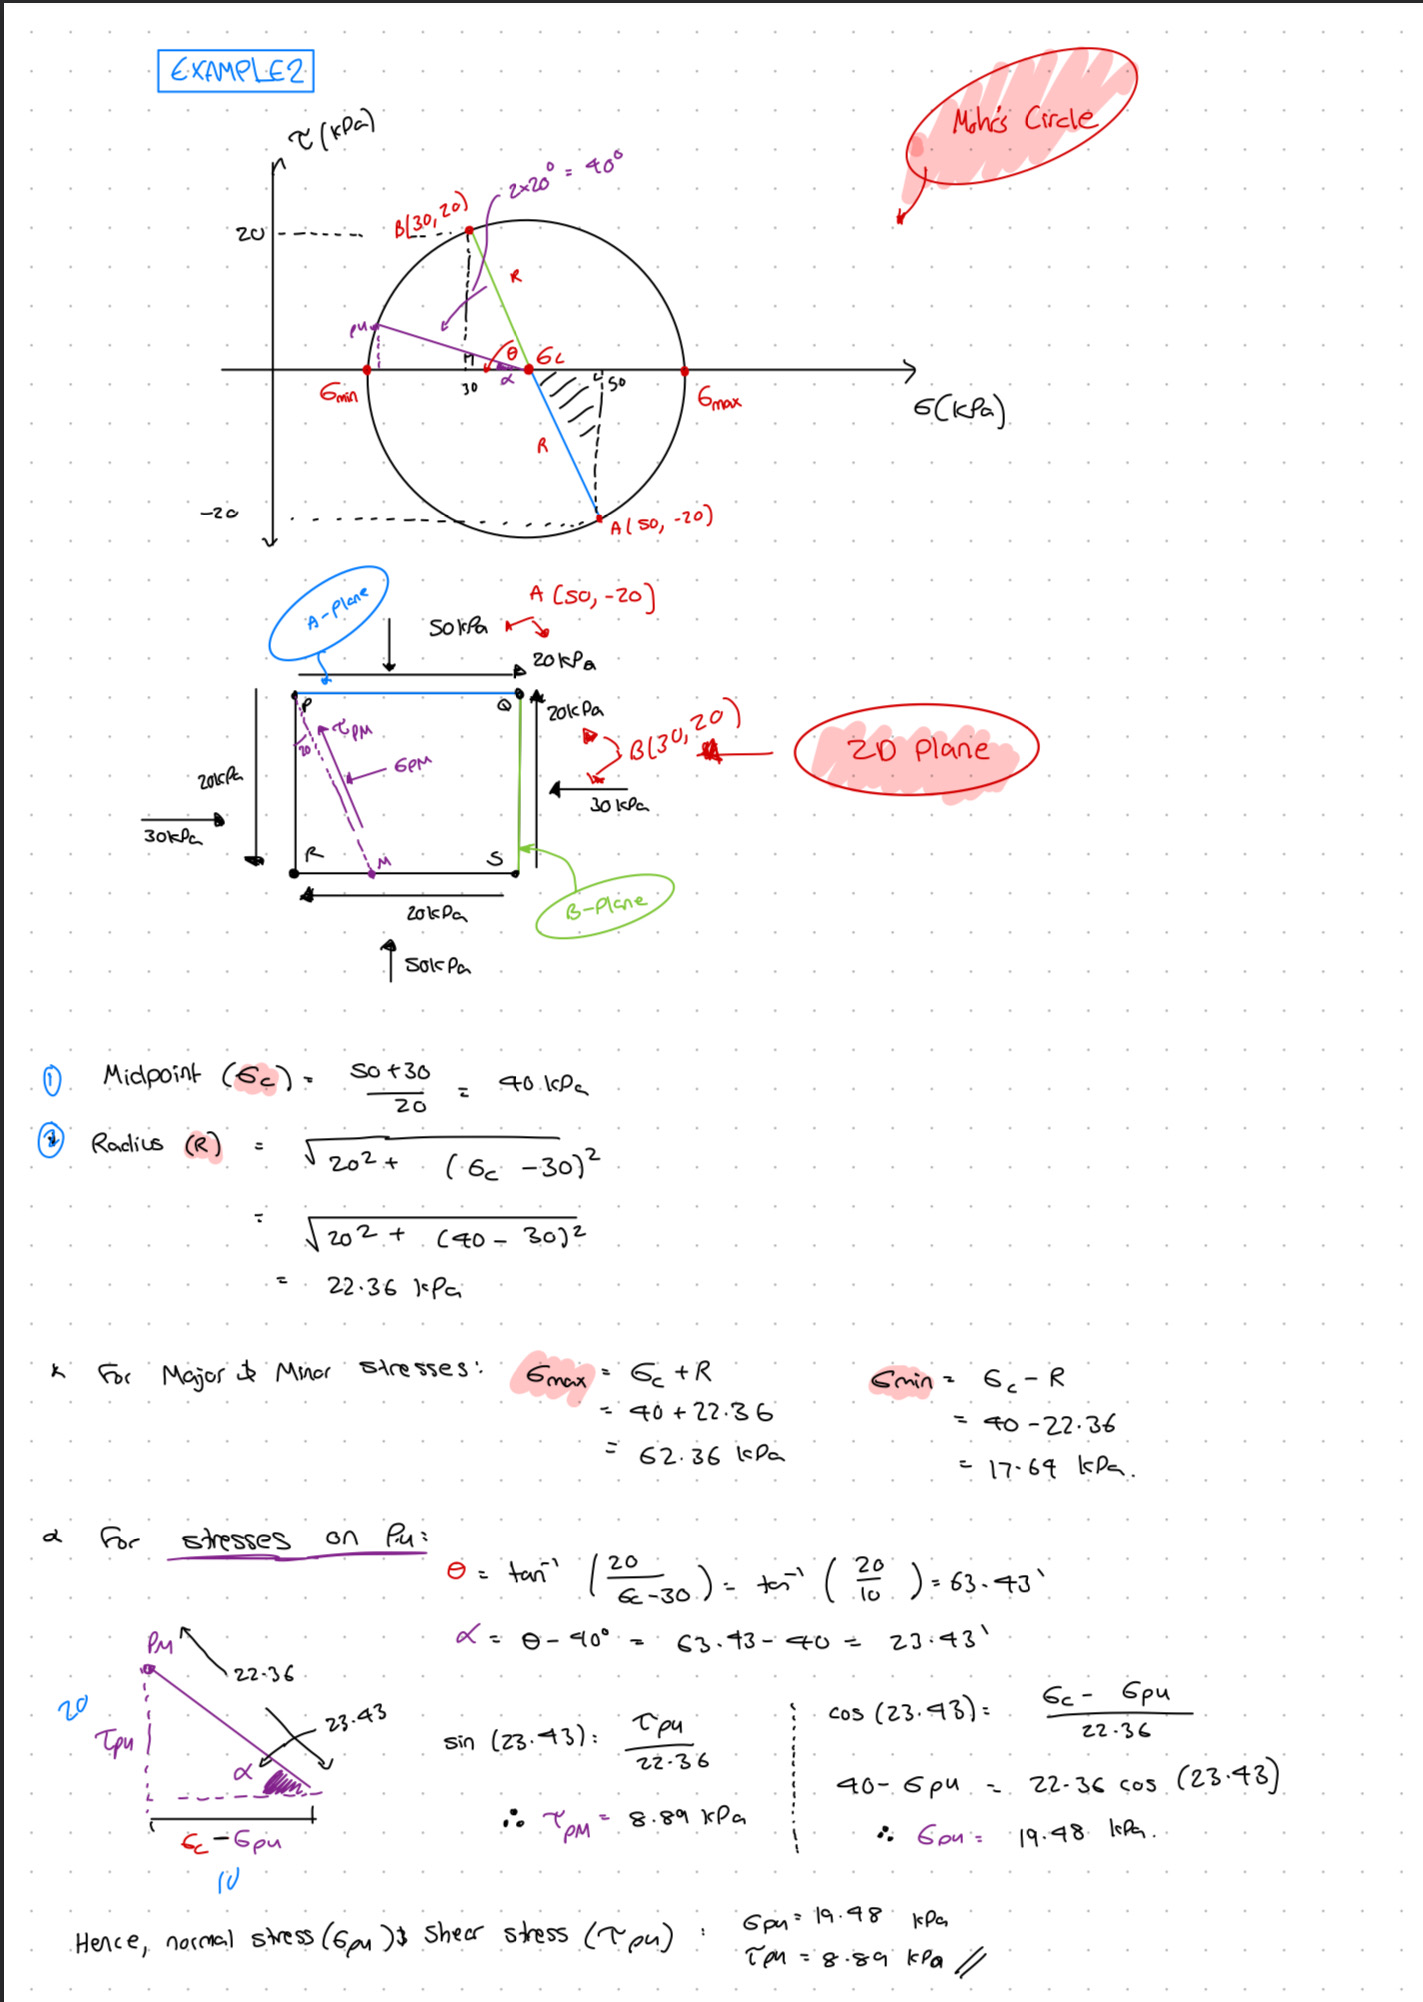 EXAMPLE 2
Mohr's Circle
τ (kPa)
2×20° = 40°
B(30, 20)
20
R
PM
θ
σc
α
30
50
σmin
σmax
σ(kPa)
R
-20
A(50, -20)
A-Plane
A (50, -20)
50kPa
20kPa
P
Q
20kPa
B(30, 20)
2D Plane
20
τPM
σPM
20kPa
30kPa
30kPa
R
M
S
B-Plane
20kPa
50kPa
① Midpoint (σc) = 50+30 / 20 = 40 kPa
② Radius (R) = √20² + (σc - 30)²
= √20² + (40 - 30)²
= 22.36 kPa
* For Major & Minor stresses: σmax = σc + R σmin = σc - R
= 40 + 22.36 = 40 - 22.36
= 62.36 kPa = 17.64 kPa.
* For stresses on PM:
θ = tan⁻¹ (20 / σc-30) = tan⁻¹ (20 / 10) = 63.43°
α = θ - 40° = 63.43 - 40 = 23.43°
PM
22.36
20
τPM
23.43
α
σc - σPM
10
sin (23.43) = τPM / 22.36
∴ τPM = 8.89 kPa
cos (23.43) = σc - σPM / 22.36
40 - σPM = 22.36 cos (23.43)
∴ σPM = 19.48 kPa.
Hence, normal stress (σPM) & shear stress (τPM) : σPM = 19.48 kPa
τPM = 8.89 kPa //